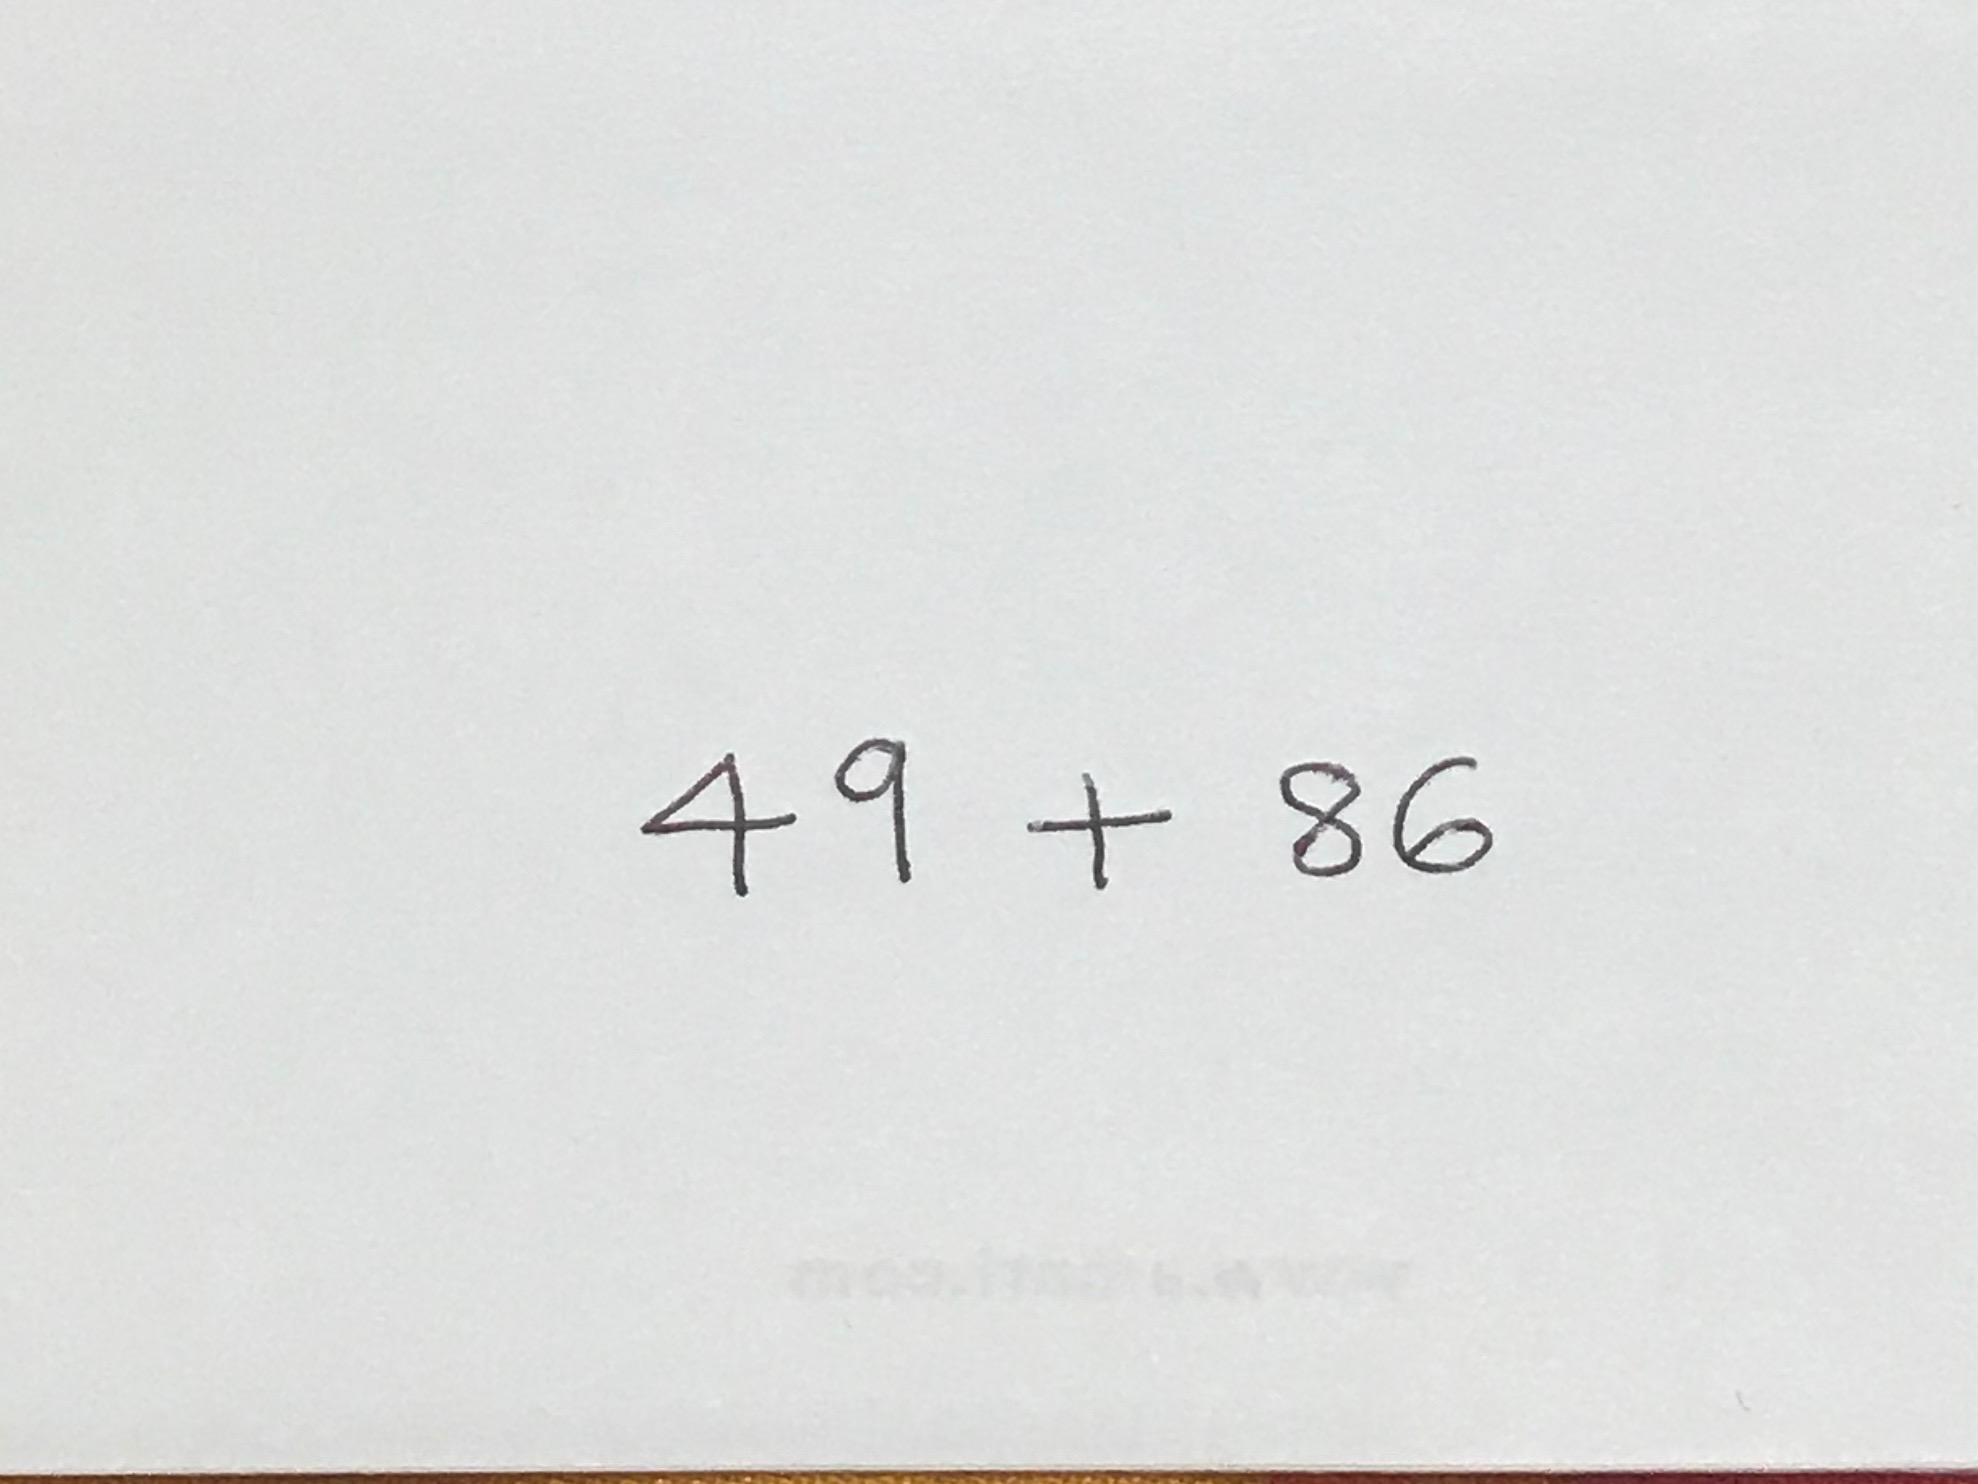 49 + 86